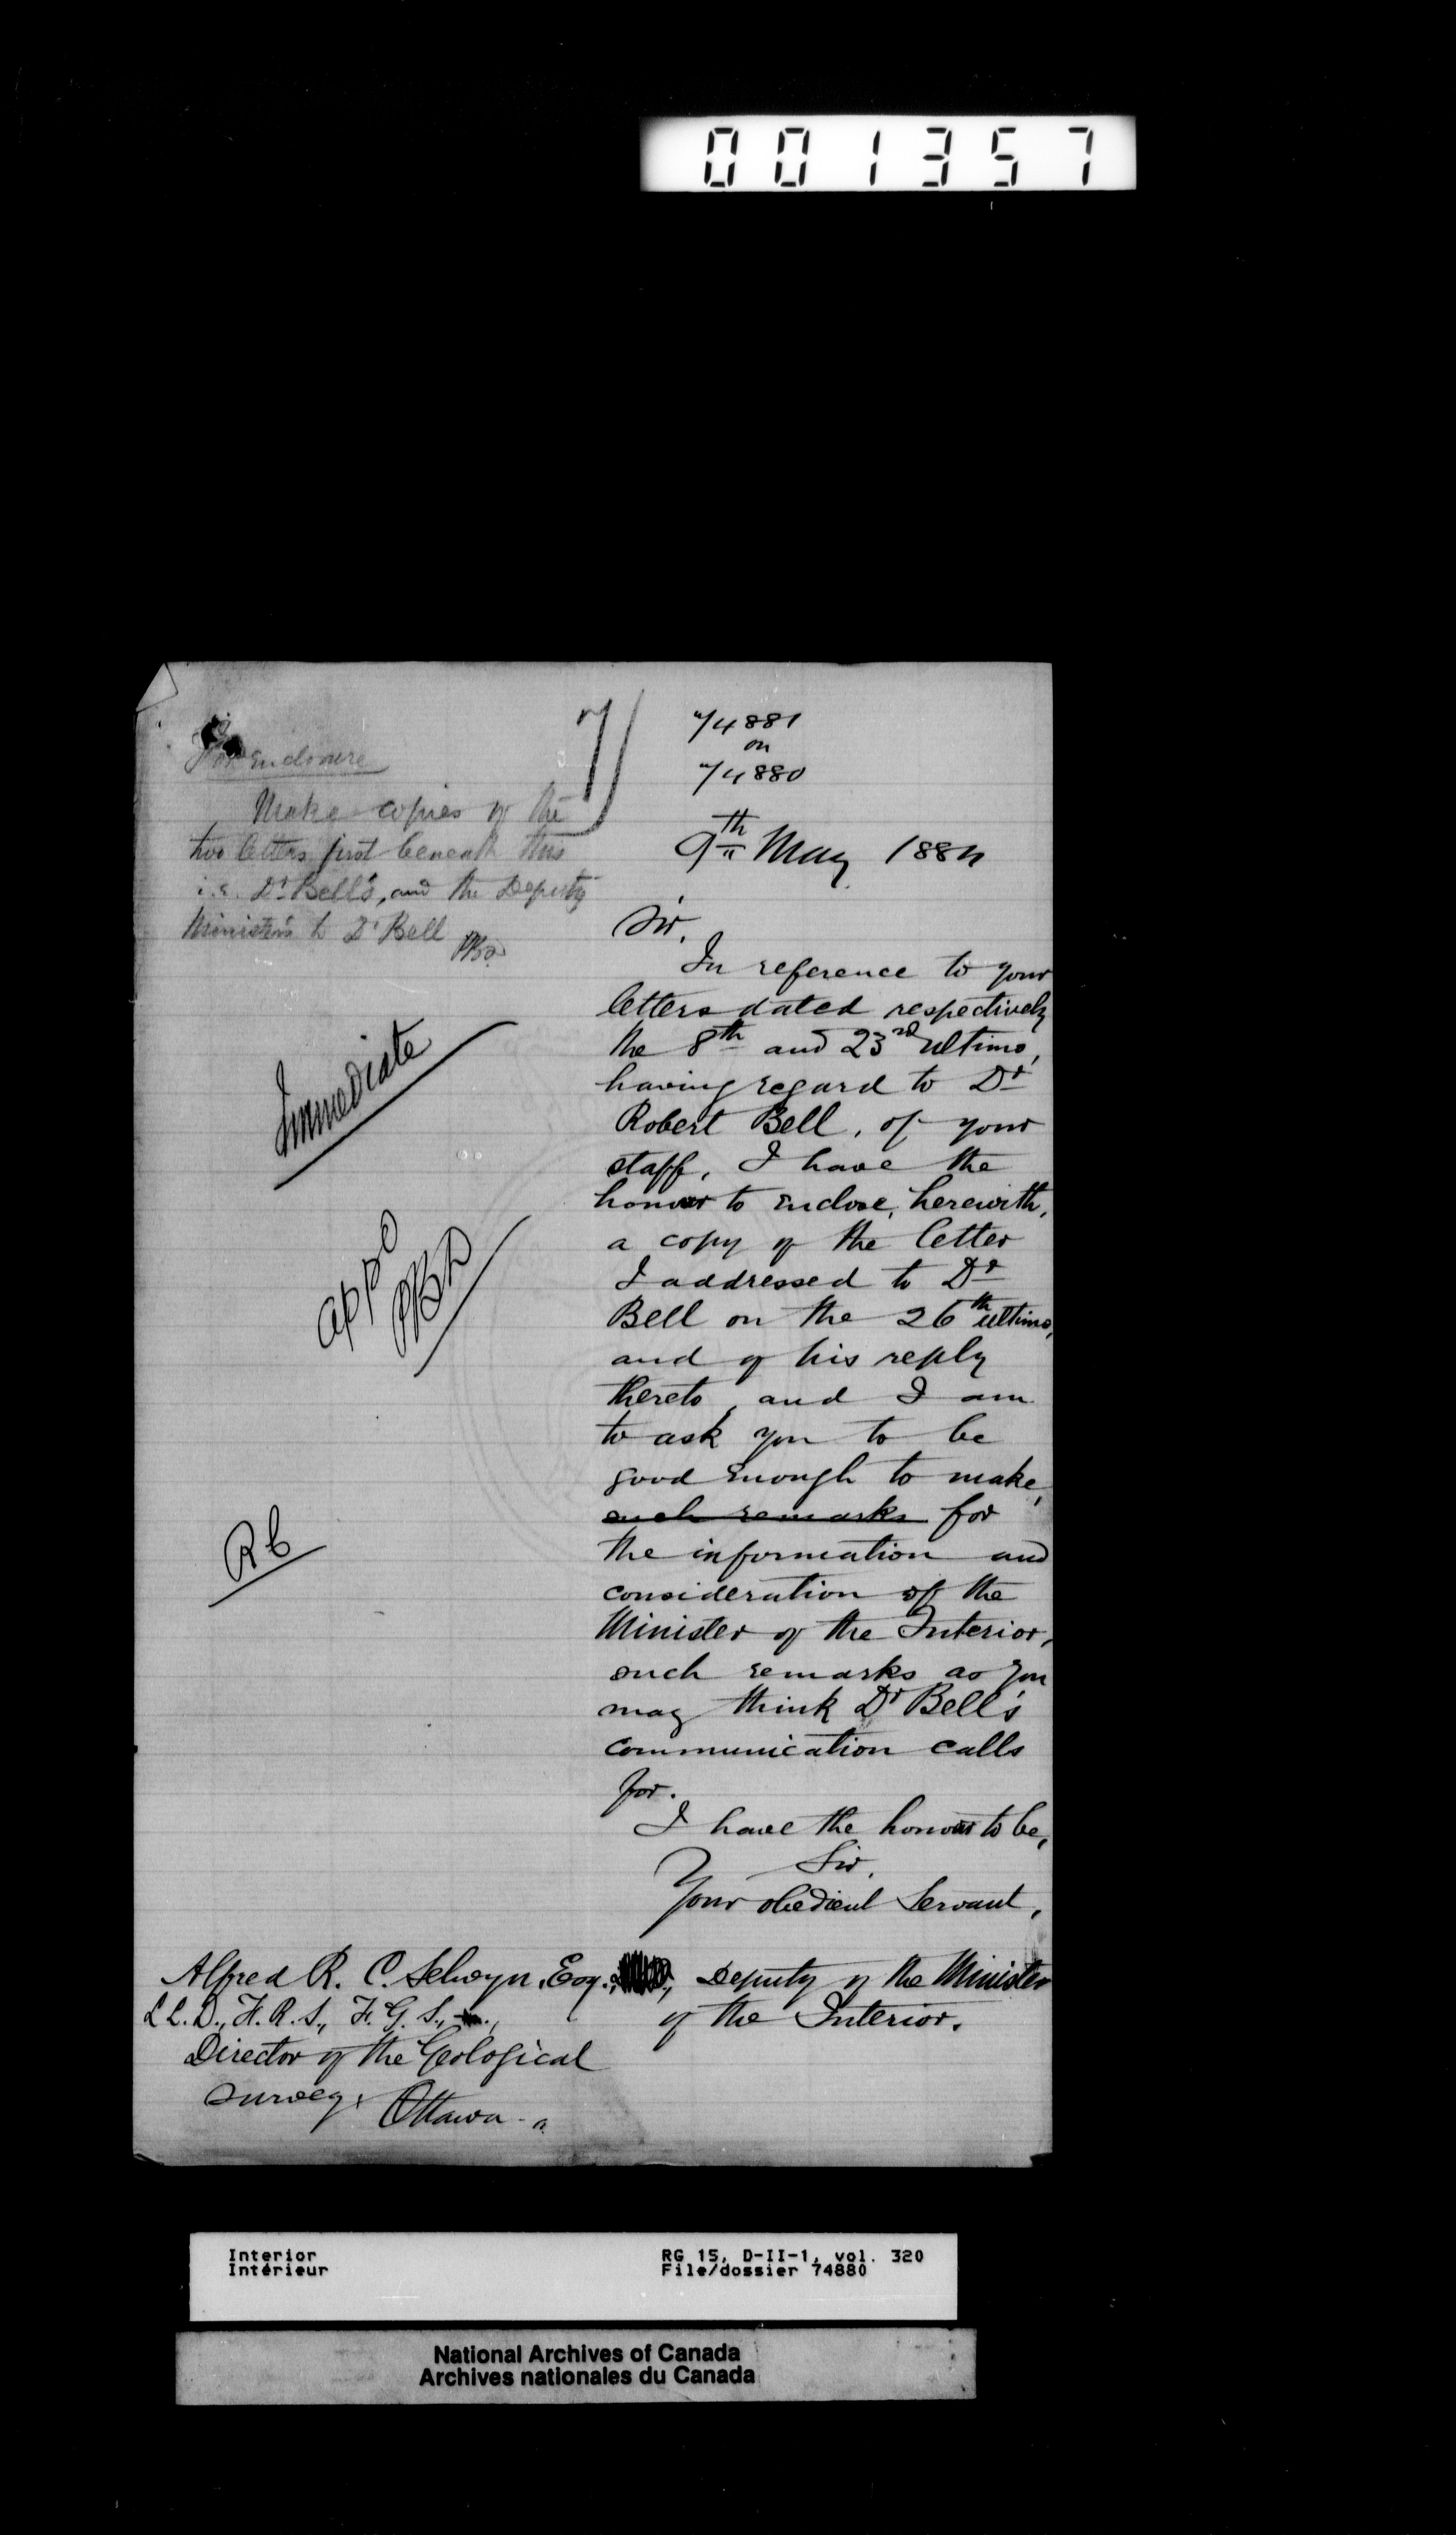 001357
74881
on
74880
For enclosure
Make copies of the
two letters first beneath this
i.e. Dr Bell's, and the Deputy
Minister's to Dr Bell
9th May 1884
Sir,
In reference to your
letters dated respectively
the 8th and 23rd ultimo,
having regard to Dr
Robert Bell, of your
staff, I have the
honour to enclose, herewith,
a copy of the letter
I addressed to Dr
Bell on the 26th ultimo,
and of his reply
thereto, and I am
to ask you to be
good enough to make,
such remarks for
the information and
consideration of the
Minister of the Interior,
such remarks as you
may think Dr Bell's
communication calls
for.
I have the honour to be,
Sir,
Your obedient Servant,
Deputy of the Minister
of the Interior.
Immediate
appd
RC
Alfred R. C. Selwyn, Esq.,
LL.D., F.R.S., F.G.S.,
Director of the Geological
Survey,
Ottawa
Interior
Intérieur
RG 15, D-II-1, vol. 320
File/dossier 74880
National Archives of Canada
Archives nationales du Canada